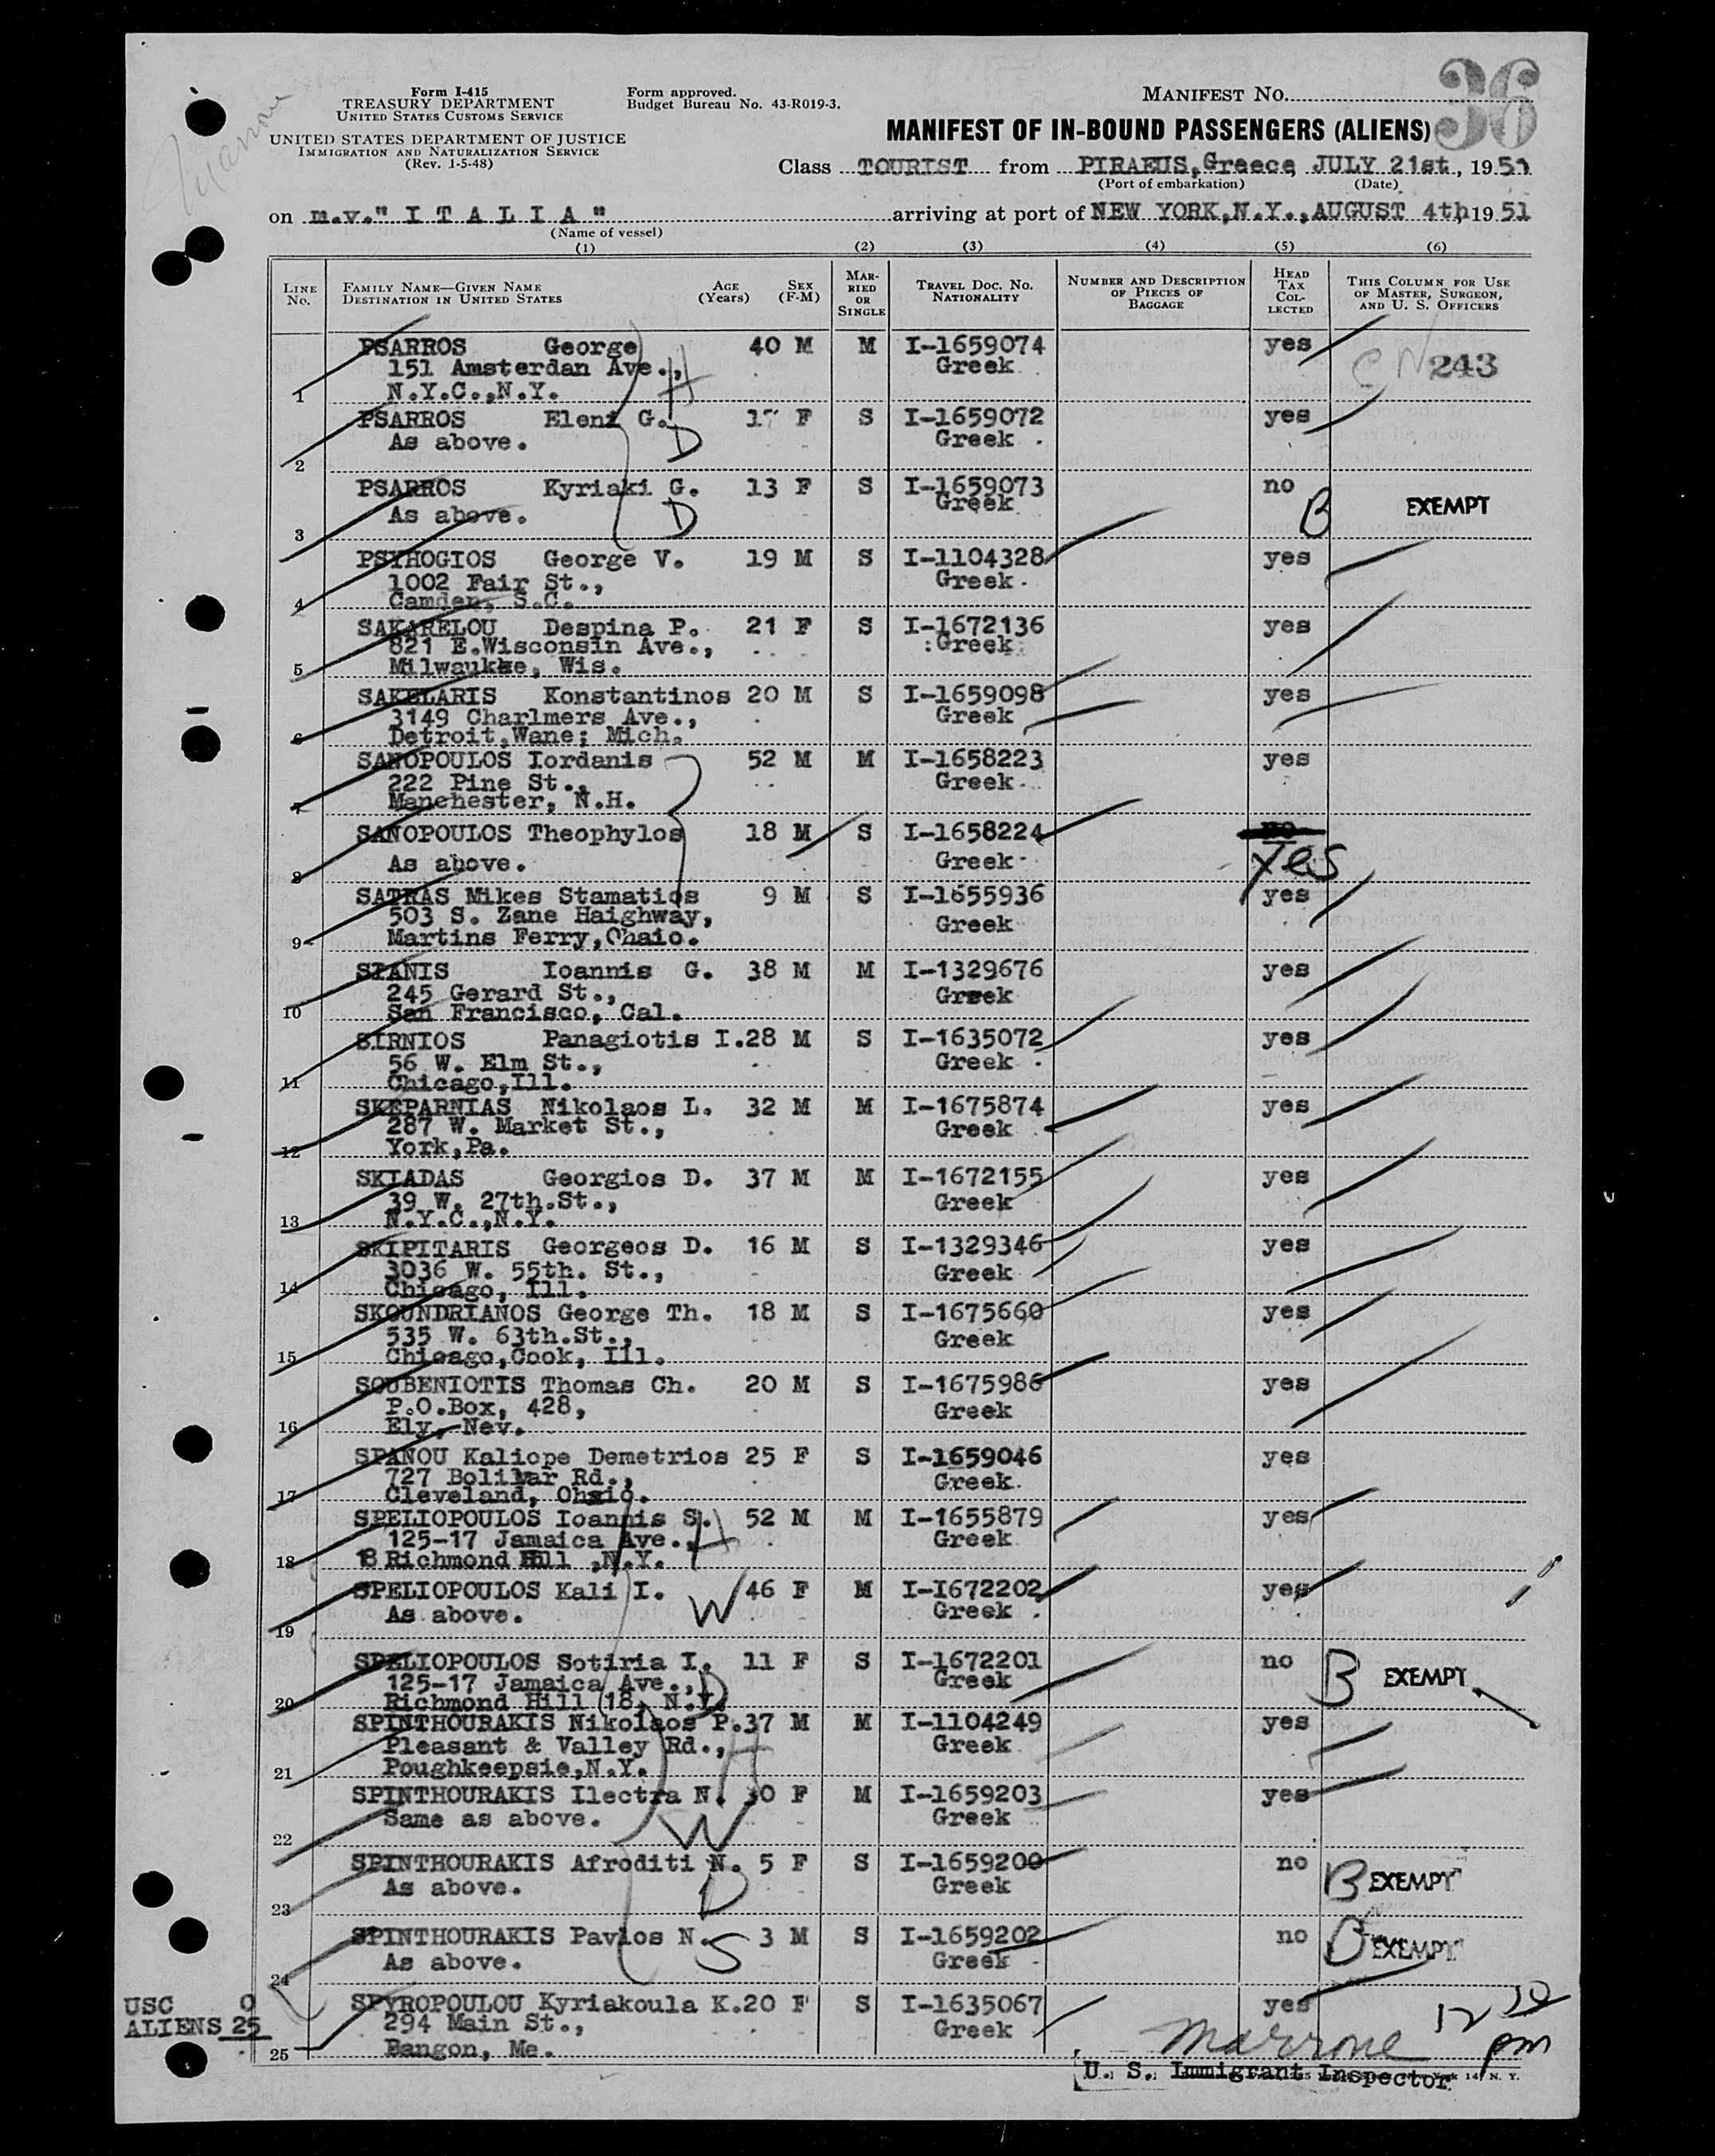 Marrone
36
Form I-415
TREASURY DEPARTMENT
UNITED STATES CUSTOMS SERVICE
UNITED STATES DEPARTMENT OF JUSTICE
IMMIGRATION AND NATURALIZATION SERVICE
(Rev. 1-5-48)
Form approved.
Budget Bureau No. 43-R019-3.
MANIFEST NO.
MANIFEST OF IN-BOUND PASSENGERS (ALIENS)
Class TOURIST from PIRAEUS, Greece, JULY 21st, 1951
(Port of embarkation) (Date)
on m.v." I T A L I A " arriving at port of NEW YORK,N.Y., AUGUST 4th 19 51
(Name of vessel)
(1) (2) (3) (4) (5) (6)
LINE NO. FAMILY NAME—GIVEN NAME DESTINATION IN UNITED STATES AGE (Years) SEX (F-M) MARRIED OR SINGLE TRAVEL DOC. NO. NATIONALITY NUMBER AND DESCRIPTION OF PIECES OF BAGGAGE HEAD TAX COLLECTED THIS COLUMN FOR USE OF MASTER, SURGEON, AND U. S. OFFICERS
PSARROS George 40 M M I-1659074 yes
151 Amsterdan Ave., H Greek 243
1 N.Y.C.,N.Y.
PSARROS Eleni G. 17 F S I-1659072 yes
As above. D Greek
2
PSARROS Kyriaki G. 13 F S I-1659073 no
As above. D Greek B EXEMPT
3
PSYHOGIOS George V. 19 M S I-1104328 yes
1002 Fair St., Greek
4 Camden, S.C.
SAKARELOU Despina P. 21 F S I-1672136 yes
821 E.Wisconsin Ave., Greek
5 Milwaukke, Wis.
SAKELARIS Konstantinos 20 M S I-1659098 yes
3149 Charlmers Ave., Greek
6 Detroit,Wane; Mich.
SANOPOULOS Iordanis 52 M M I-1658223 yes
222 Pine St., Greek
7 Manchester, N.H.
SANOPOULOS Theophylos 18 M S I-1658224 no
As above. Greek yes
8
SATRAS Mikes Stamatios 9 M S I-1655936 yes
503 S. Zane Haighway, Greek
9 Martins Ferry,Ohaio.
SPANIS Ioannis G. 38 M M I-1329676 yes
245 Gerard St., Greek
10 San Francisco, Cal.
SIRNIOS Panagiotis I. 28 M S I-1635072 yes
56 W. Elm St., Greek
11 Chicago,Ill.
SKEPARNIAS Nikolaos L. 32 M M I-1675874 yes
287 W. Market St., Greek
12 York,Pa.
SKIADAS Georgios D. 37 M M I-1672155 yes
39 W. 27th.St., Greek
13 N.Y.C.,N.Y.
SKIPITARIS Georgeos D. 16 M S I-1329346 yes
3036 W. 55th. St., Greek
14 Chicago, Ill.
SKOUNDRIANOS George Th. 18 M S I-1675660 yes
535 W. 63th.St., Greek
15 Chicago,Cook, Ill.
SOUBENIOTIS Thomas Ch. 20 M S I-1675986 yes
P.O.Box, 428, Greek
16 Ely, Nev.
SPANOU Kaliope Demetrios 25 F S I-1659046 yes
727 Bolivar Rd., Greek
17 Cleveland, Ohaio.
SPELIOPOULOS Ioannis S. 52 M M I-1655879 yes
125-17 Jamaica Ave., H Greek
18 18 Richmond Hill ,N.Y.
SPELIOPOULOS Kali I. W 46 F M I-1672202 yes
As above. Greek
19
SPELIOPOULOS Sotiria I. 11 F S I-1672201 no
125-17 Jamaica Ave., D Greek B EXEMPT
20 Richmond Hill (18, N.Y.
SPINTHOURAKIS Nikolaos P. 37 M M I-1104249 yes
Pleasant & Valley Rd., H Greek
21 Poughkeepsie,N.Y.
SPINTHOURAKIS Ilectra N. 30 F M I-1659203 yes
Same as above. W Greek
22
SPINTHOURAKIS Afroditi N. 5 F S I-1659200 no
As above. D Greek B EXEMPT
23
SPINTHOURAKIS Pavlos N. 3 M S I-1659202 no
As above. S Greek B EXEMPT
24
SPYROPOULOU Kyriakoula K. 20 F S I-1635067 yes
294 Main St., Greek
25 Bangon, Me.
USC 0
ALIENS 25
12 30 pm
Marrone
U. S. Immigrant Inspector
14, N. Y.